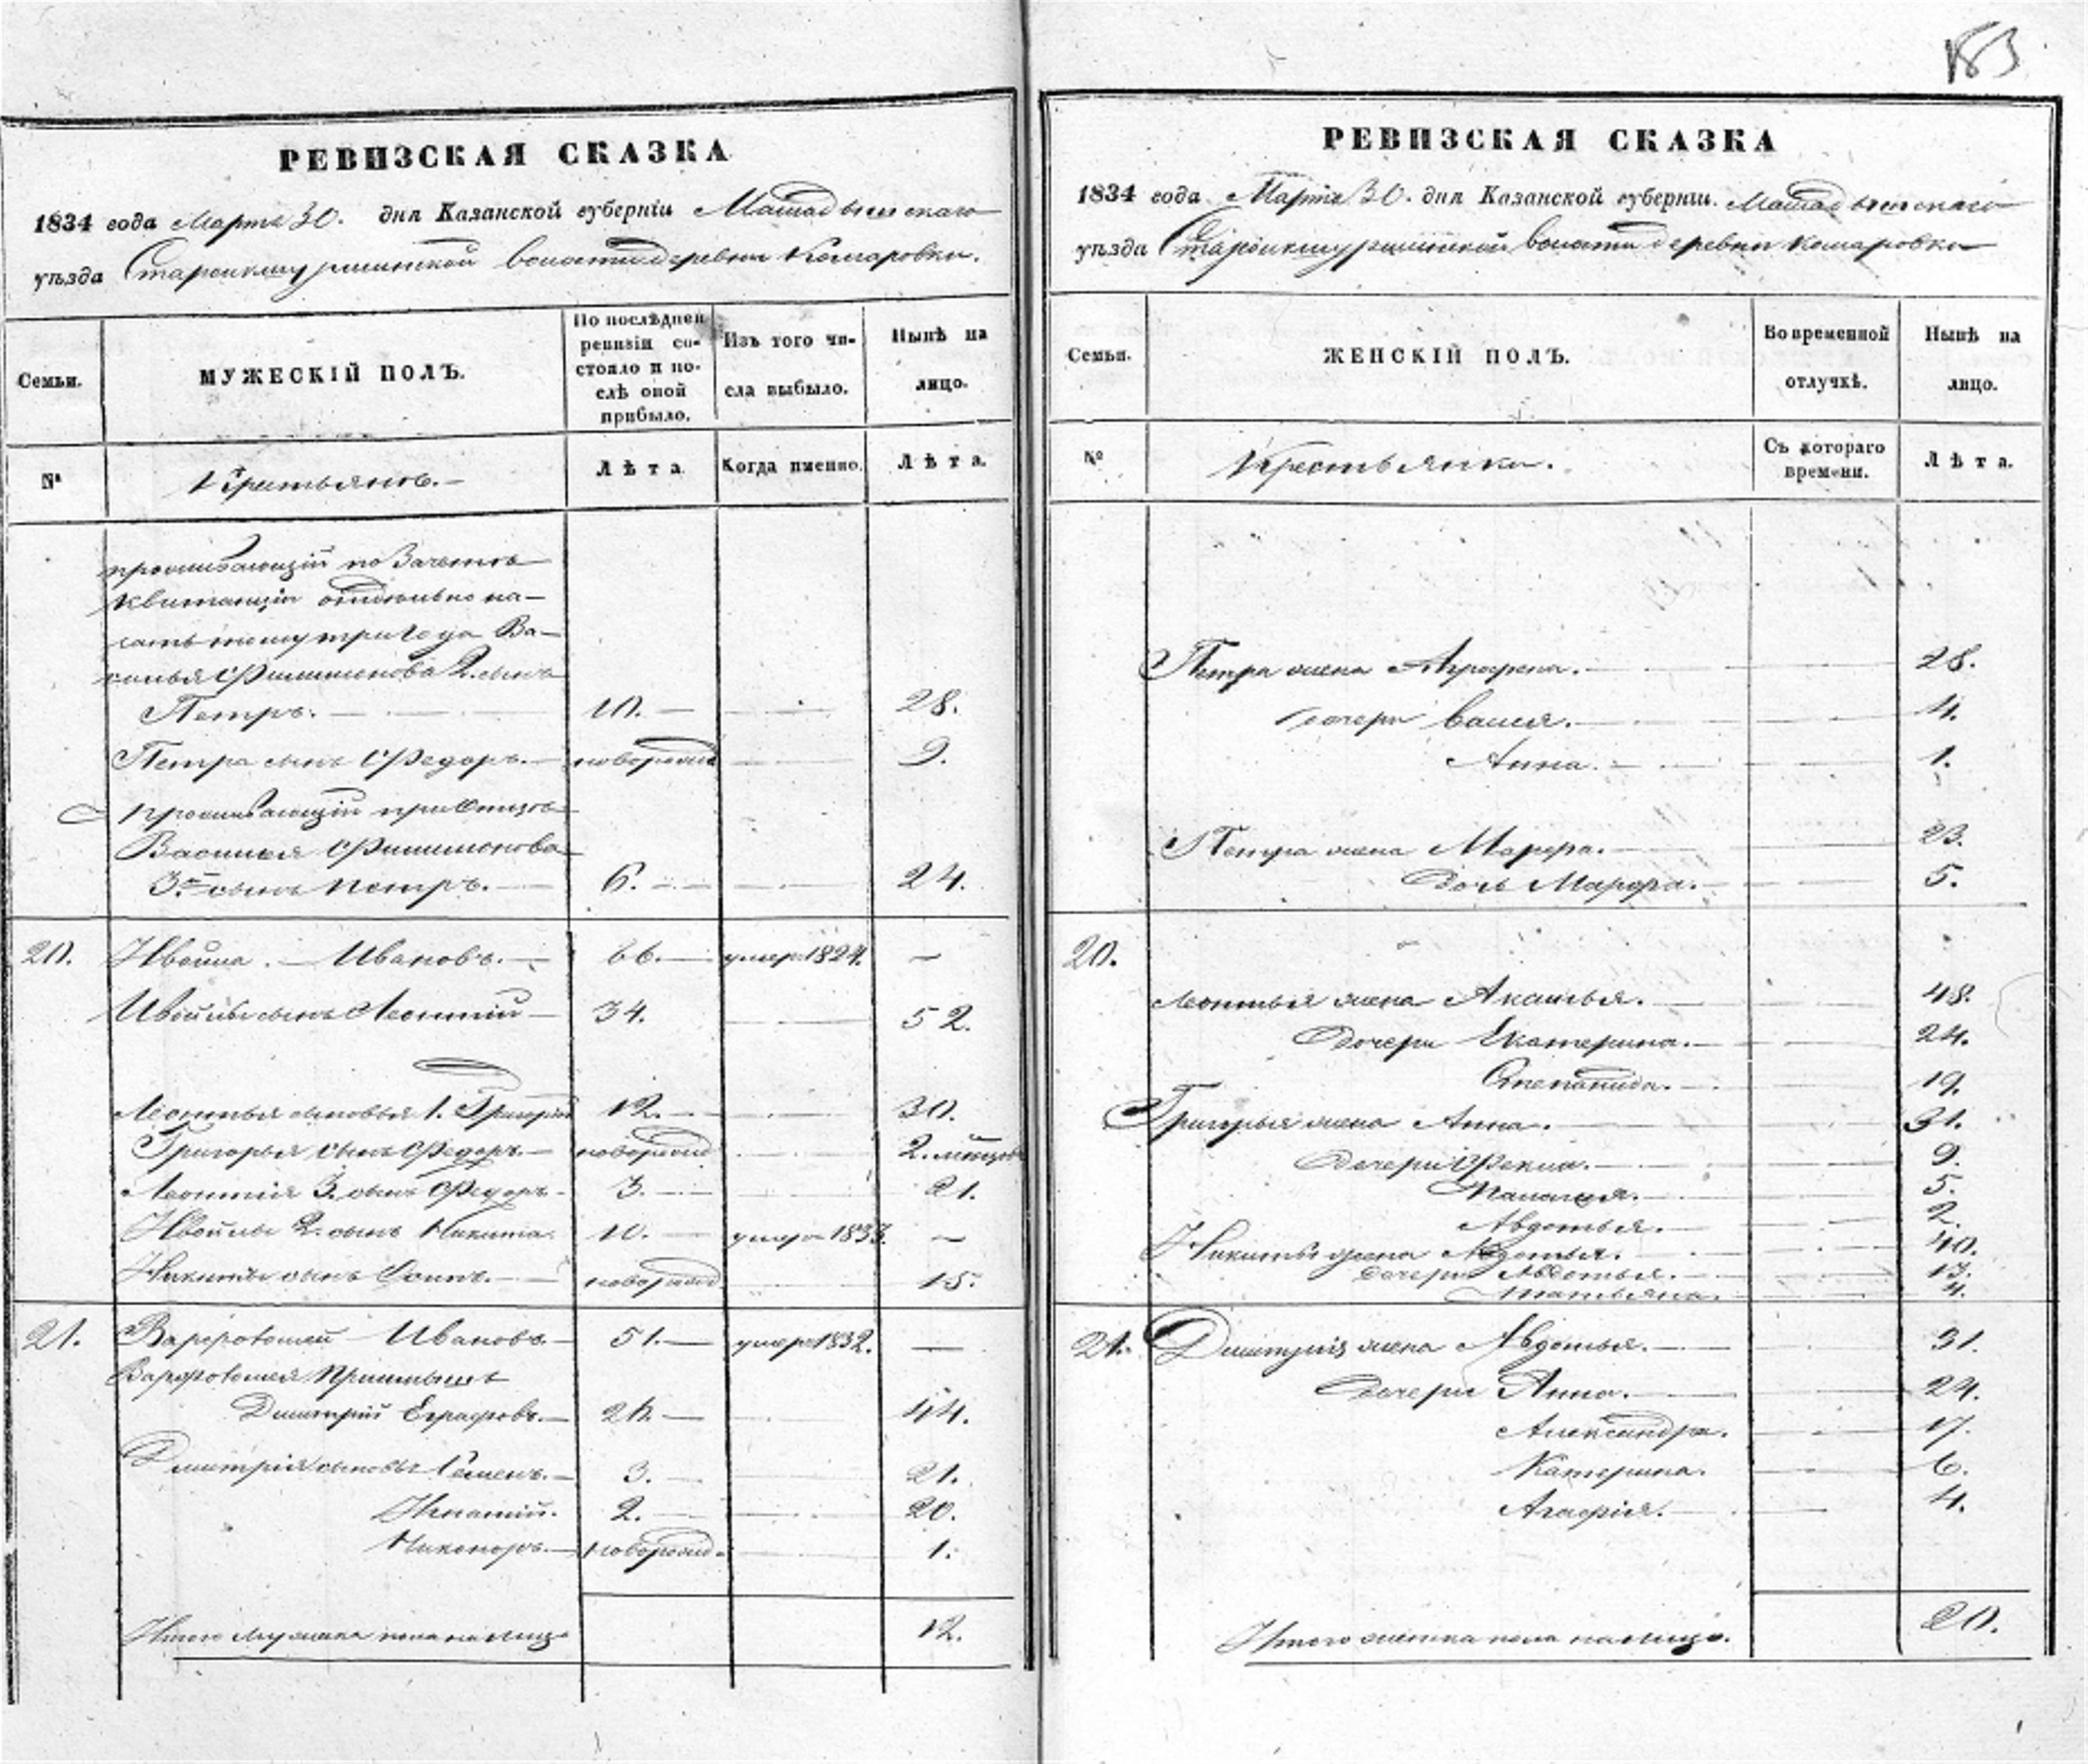 183
РЕВИЗСКАЯ СКАЗКА
1834 года Марта 30. дня Казанской губерніи Мамадышскаго
уѣзда волости деревни Комаровки.
Семьи.
МУЖЕСКІЙ ПОЛЪ.
По послѣдней ревизіи состояло и послѣ оной прибыло.
Изъ того числа выбыло.
Нынѣ на лицо.
№
Крестьяновъ.
Лѣта
Когда именно.
Лѣта.
проживающій по зачетной
квитанціи отдѣльно на-
Ва-
силья Филимонова 2. сынъ
Петръ. 10. 28.
Петра сынъ Федоръ. новорожд 9.
проживающій при отцѣ
Василья Филимонова
3й сынъ Петръ. 6. 24.
20. Ивойла Ивановъ. 66. умеръ 1824. —
Ивойлы сынъ Леонтій 34. 52.
Леонтья сыновья 1. Григорій 12. 30.
Григорья сынъ Федоръ. новорожд 2. мѣсяцов
Леонтія 3. сынъ Федоръ 3. 21.
Ивойлы 2. сынъ Никита 10. умеръ 1833. —
Никиты сынъ новорожд 15.
21. Варфоломей Ивановъ 51. умеръ 1832. —
Варфоломея
Дмитрій Еграфовъ. 26. 44.
Дмитрія сыновья Семенъ. 3. 21.
Игнатій. 2. 20.
Никоноръ. новорожд. 1.
Итого мужеска пола на лицо 12.
РЕВИЗСКАЯ СКАЗКА
1834 года Марта 30. дня Казанской губерніи. Мамадышскаго
уѣзда волости деревни Комаровки
Семьи.
ЖЕНСКІЙ ПОЛЪ.
Во временной отлучкѣ.
Нынѣ на лицо.
№
Крестьянки.
Съ котораго времени.
Лѣта.
Петра жена Аграфена. 28.
дочери 4.
Анна. 1.
Петра жена Марфа. 23.
Дочь Марфа. 5.
20.
Леонтья жена Акилья. 48.
Дочери Екатерина. 24.
Степанида. 19.
Григорья жена Анна. 31.
Дочери Фекла. 9.
Малалья. 5.
Авдотья. 2.
Никиты жена Авдотья. 40.
дочери Авдотья. 13.
Татьяна. 4.
21. Дмитрія жена Авдотья. 31.
Дочери Анна. 24.
Александра. 17.
Катерина. 6.
Агафія. 4.
Итого женска пола на лицо. 20.